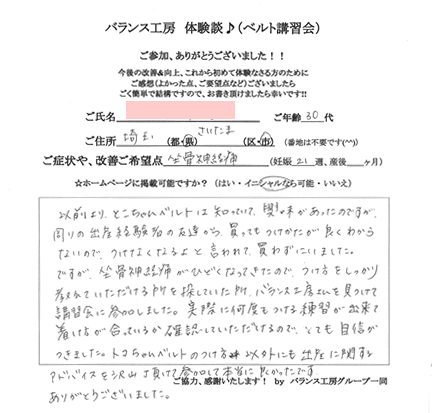 バランス工房 体験談♪(ベルト講習会)
ご参加、ありがとうございました！！
今後の改善&向上、これから初めて体験なさる方のために
ご感想(よかった点、ご要望点など)ございましたら
ごく簡単で結構ですので、お書き頂けましたら幸いです!!
ご氏名 ご年齢 30 代
ご住所 埼玉 (都・県) さいたま (区・市) (番地は不要です(^^))
ご症状や、改善ご希望点 坐骨神経痛 (妊娠 21 週、産後 ヶ月)
☆ホームページに掲載可能ですか？ (はい・イニシャルなら可能・いいえ)
以前より、とこちゃんベルトは知っていて、興味があったのですが、
周りの出産経験者の友達から、買ってもつけかたが良くわから
ないので、つけなくなるよと言われて、買わずにいました。
ですが、坐骨神経痛がひどくなってきたので、つけ方をしっかり
教えていただける所を探していた所、バランス工房さんを見つけて
講習会に参加しました。実際に何度もつける練習が出来て
着け方が合っているか確認していただけるので、とても自信が
つきました。トコちゃんベルトのつけ方以外にも出産に関する
アドバイスを沢山頂けて参加して本当に良かったです。
ありがとうございました。
ご協力、感謝いたします！ by バランス工房グループ一同